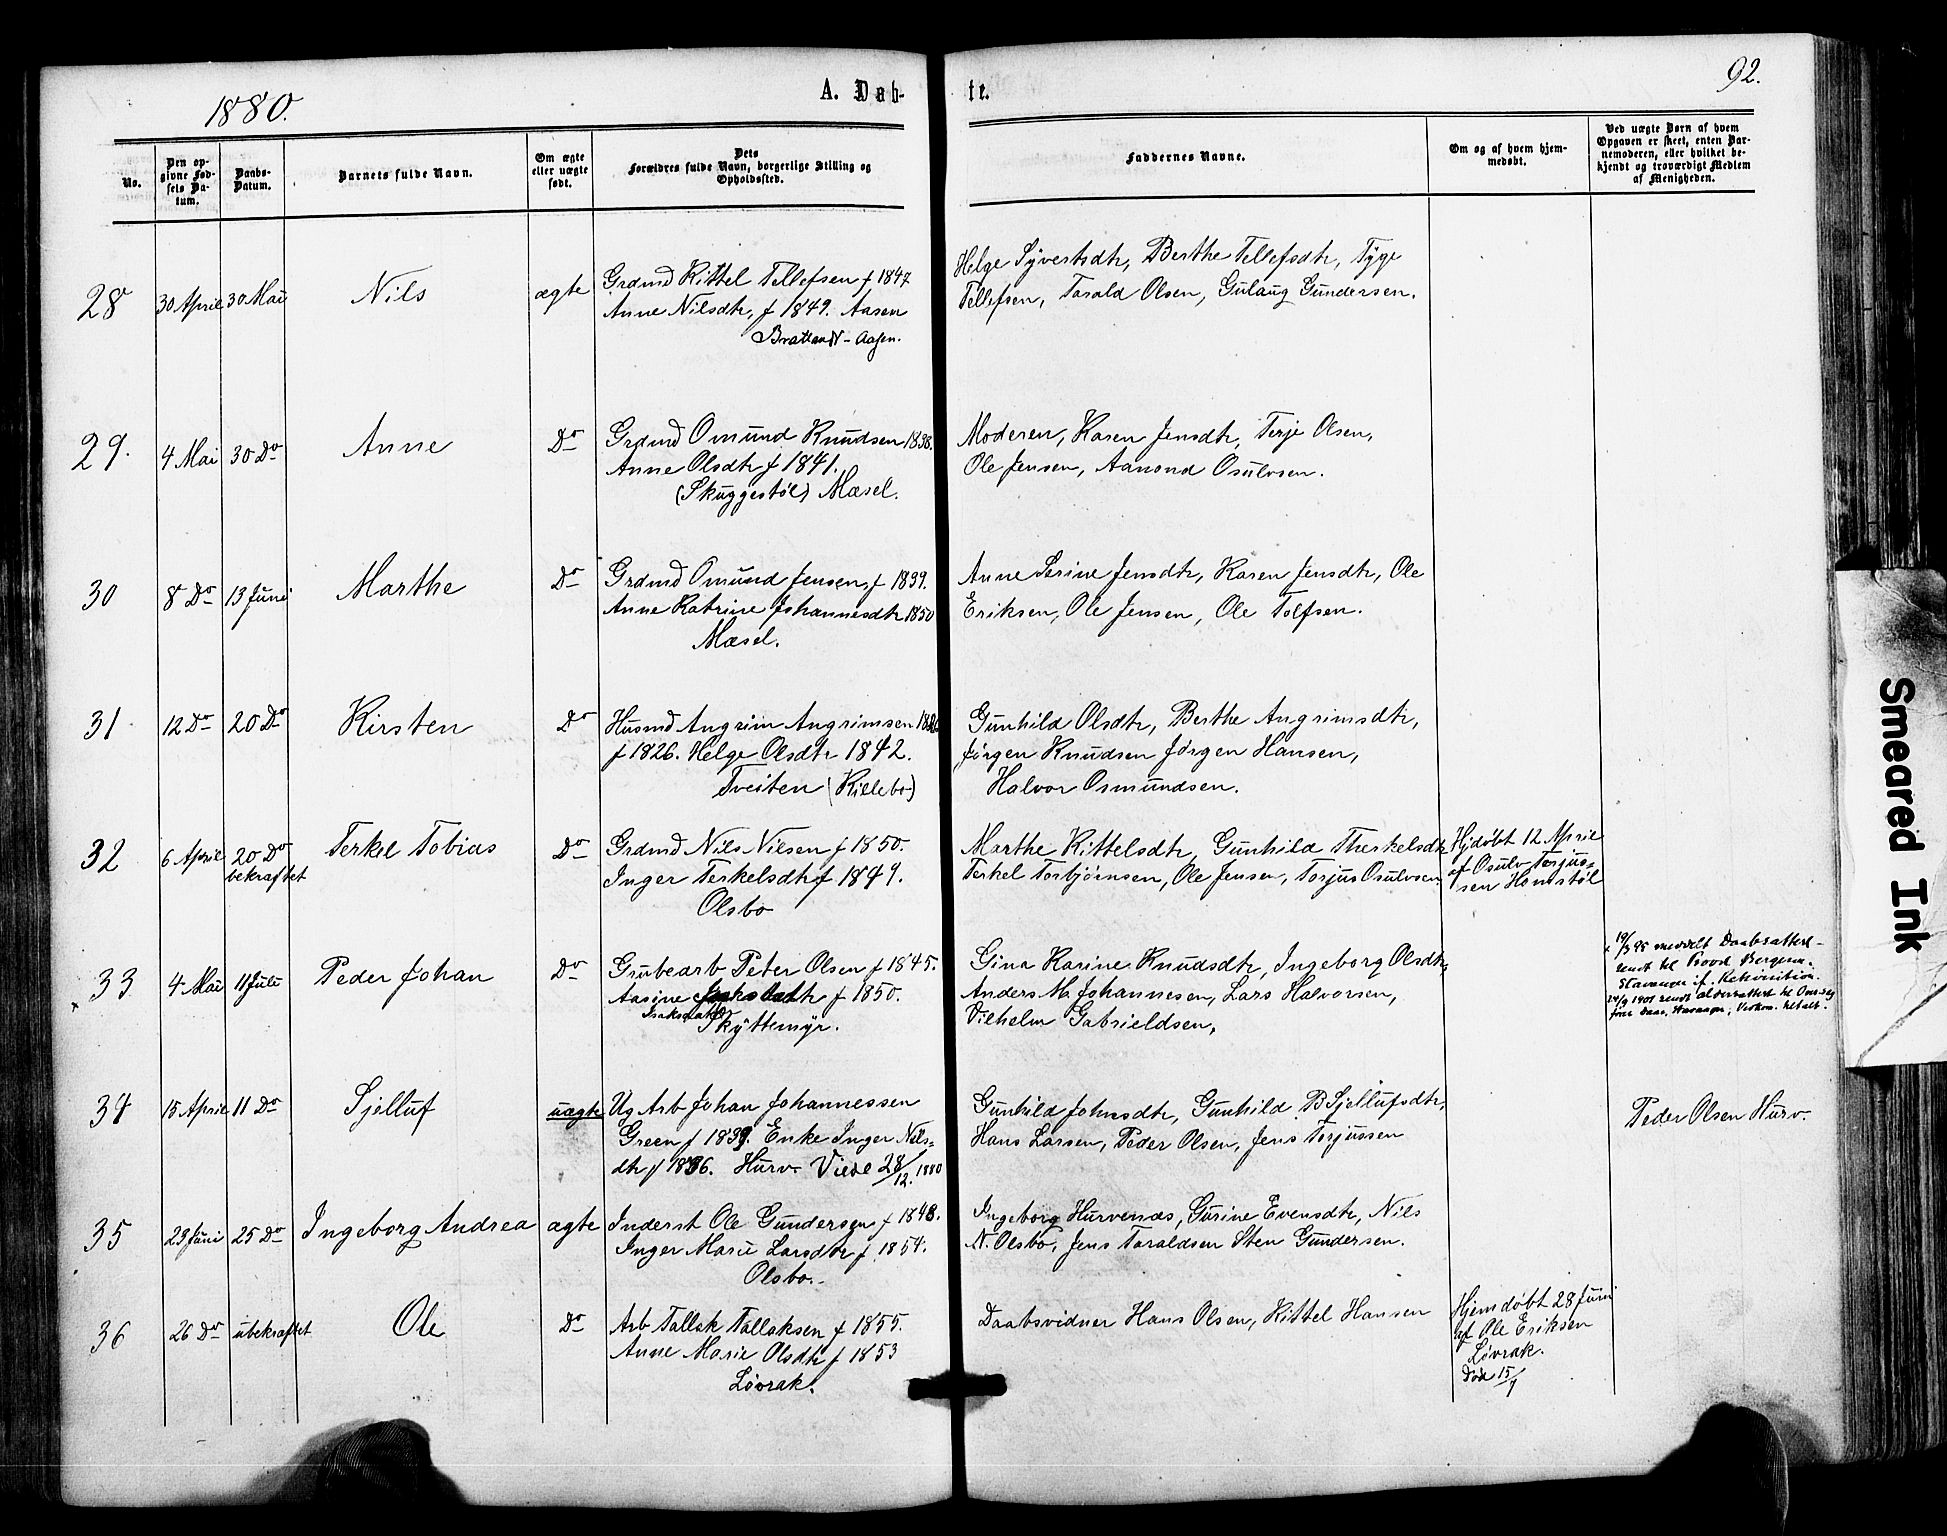 1880.
A. Døb-
te.
92.
No.
Den op-
givne Fød-
sels Da-
tum.
Daabs-
Datum.
Barnets fulde Navn.
Om ægte
eller uægte
født.
Dets
Forældres fulde Navn, borgerlige Stilling og
Opholdssted.
Faddernes Navne.
Om og af hvem hjem-
medøbt.
Ved uægte Børn af hvem
Opgaven er skeet, enten Bar-
nemoderen, eller hvilket be-
kjendt og troværdigt Medlem
af Menigheden.
28 30 April 30 Mai Nils ægte
Grdmd Kittel Tellefsen f 1847
Anne Nilsdtr, f 1849. Aasen
Bratland-Aasen.
Helge Syvertsdtr, Berthe Tellefsdtr, Tyge
Tellefsen, Tarald Olsen, Gulaug Gundersen.
29. 4 Mai 30 Do Anne Do
Grdmd Omund Knudsen 1838.
Anne Olsdtr f 1841.
(Skuggestøl) Mæsel.
Moderen, Karen Jensdtr, Terje Olsen,
Ole Jensen, Aanond Osulvsen.
30 8 Do 13 Juni Marthe Do
Grdmd Omund Jensen, f 1839.
Anne Katrine Johannesdtr 1850
Mæsel.
Anne Serine Jensdtr, Karen Jensdtr, Ole
Eriksen, Ole Jensen, Ole Tolfsen.
31 12 Do 20 Do Kirsten Do
Husmd Angrim Angrimsen
f 1826. Helge Olsdtr 1842.
Tveiten (Killebo)
Gunhild Olsdtr, Berthe Angrimsdtr,
Jørgen Knudsen Jørgen Hansen,
Halvor Osmundsen.
32 6 April 20 Do
bekraftet
Terkel Tobias Do
Grdmd Nils Nilsen f 1850.
Inger Terkelsdtr f 1849.
Olsbo
Marthe Kittelsdtr, Gunhild Therkelsdtr
Terkel Torbjørnsen, Ole Jensen, Torjus Osulvsen
Hjdøbt 12 April
af Osulv Torjus-
sen Homstøl
33 4 Mai 11 Juli Peder Johan Do
Grubearb Peter Olsen f 1845.
Aasine f 1850.
Isaksdatter
Skyttemyr.
Gina Karine Knudsdtr, Ingeborg Olsdtr,
Anders M. Johannesen, Lars Halvorsen,
Vilhelm Gabrieldsen,
19/3 95 meddelt Daabsattest-
sendt til Provd
Stavanger if. Rekvisition.
24/9 1901 sendt aldersattest til
34 15 April 11 Do Sjelluf uægte
Ug Arb Johan Johannessen
Green f 1839. Enke Inger Nils-
dtr f 1836. Hurv- Viede 28/12. 1880
Gunhild Johnsdtr, Gunhild B Sjellufsdtr,
Hans Larsen, Peder Olsen, Jens Torjussen
Peder Olsen Hurv.
35 23 Juni 25 Do Ingeborg Andrea ægte
Inderst Ole Gundersen, f 1848.
Inger Marie Larsdtr f. 1854.
Olsbo.
Ingeborg Hurvenæs, Gurine Evensdtr, Nils
N. Olsbo, Jens Taraldsen Sten Gundersen.
36 26 Do ubekraftet Ole Do
Arb Tallak Tallaksen f 1855.
Anne Marie Olsdtr f 1853
Løvrak.
Daabsvidner Hans Olsen, Kittel Hansen
Hjemdøbt 28 Juni
af Ole Eriksen
Løvrak.
Død 15/7
Smeared Ink